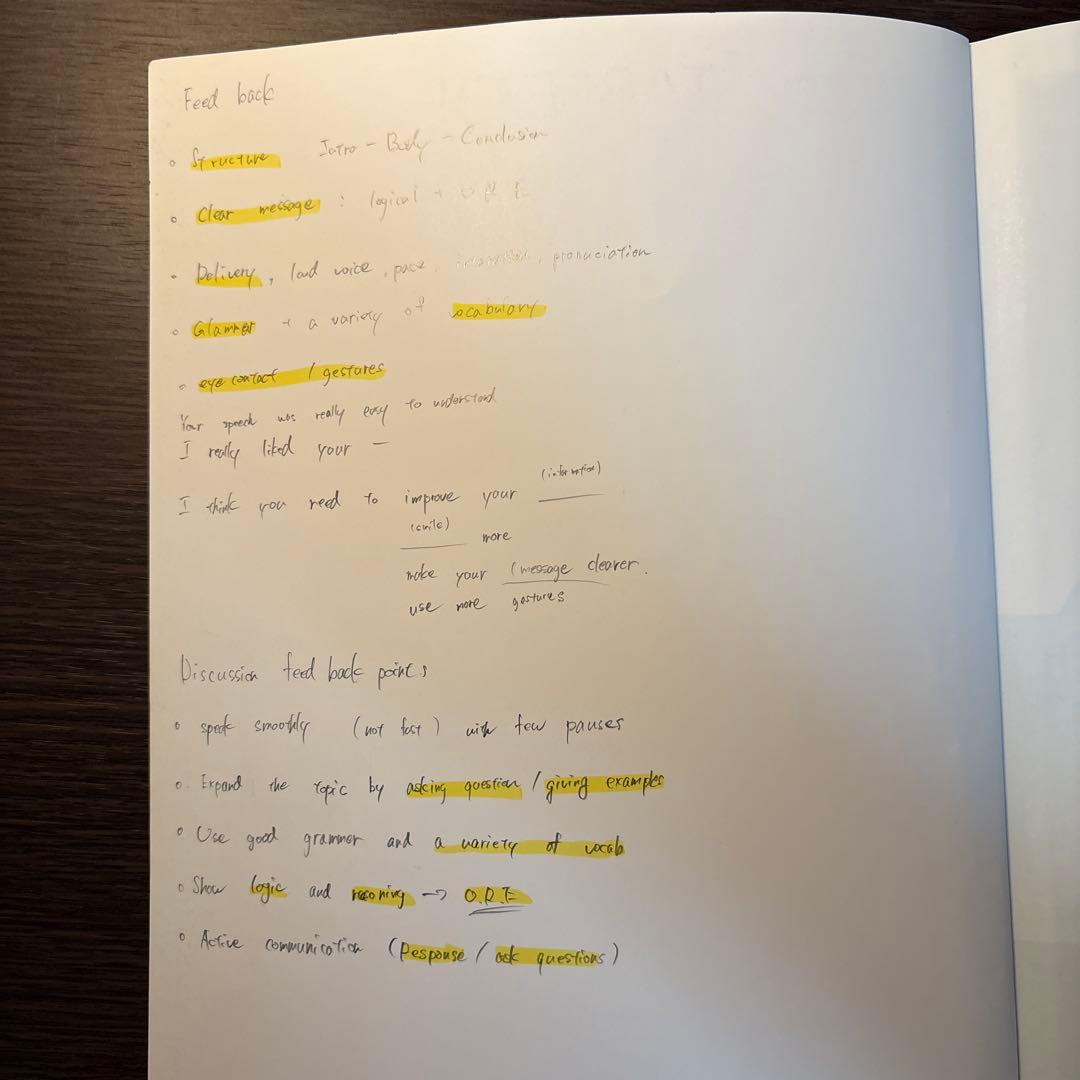 Feed back
Structure Intro - Body - Conclusion
Clear message : logical + O R E
Delivery, loud voice, pace, pronuciation
Glammer + a variety of vocabulary
eye contact / gestures
Your speech was really easy to understand
I really liked your —
(information)
I think you need to improve your
(smile)
more
make your (message clearer.
use more gestures
Discussion feed back points
speak smoothly (not fast) with few pauses
Expand the topic by asking question / giving examples
Use good grammer and a variety of vocab
Show logic and reasoning → O.R.E
Active communication (Response / ask questions)